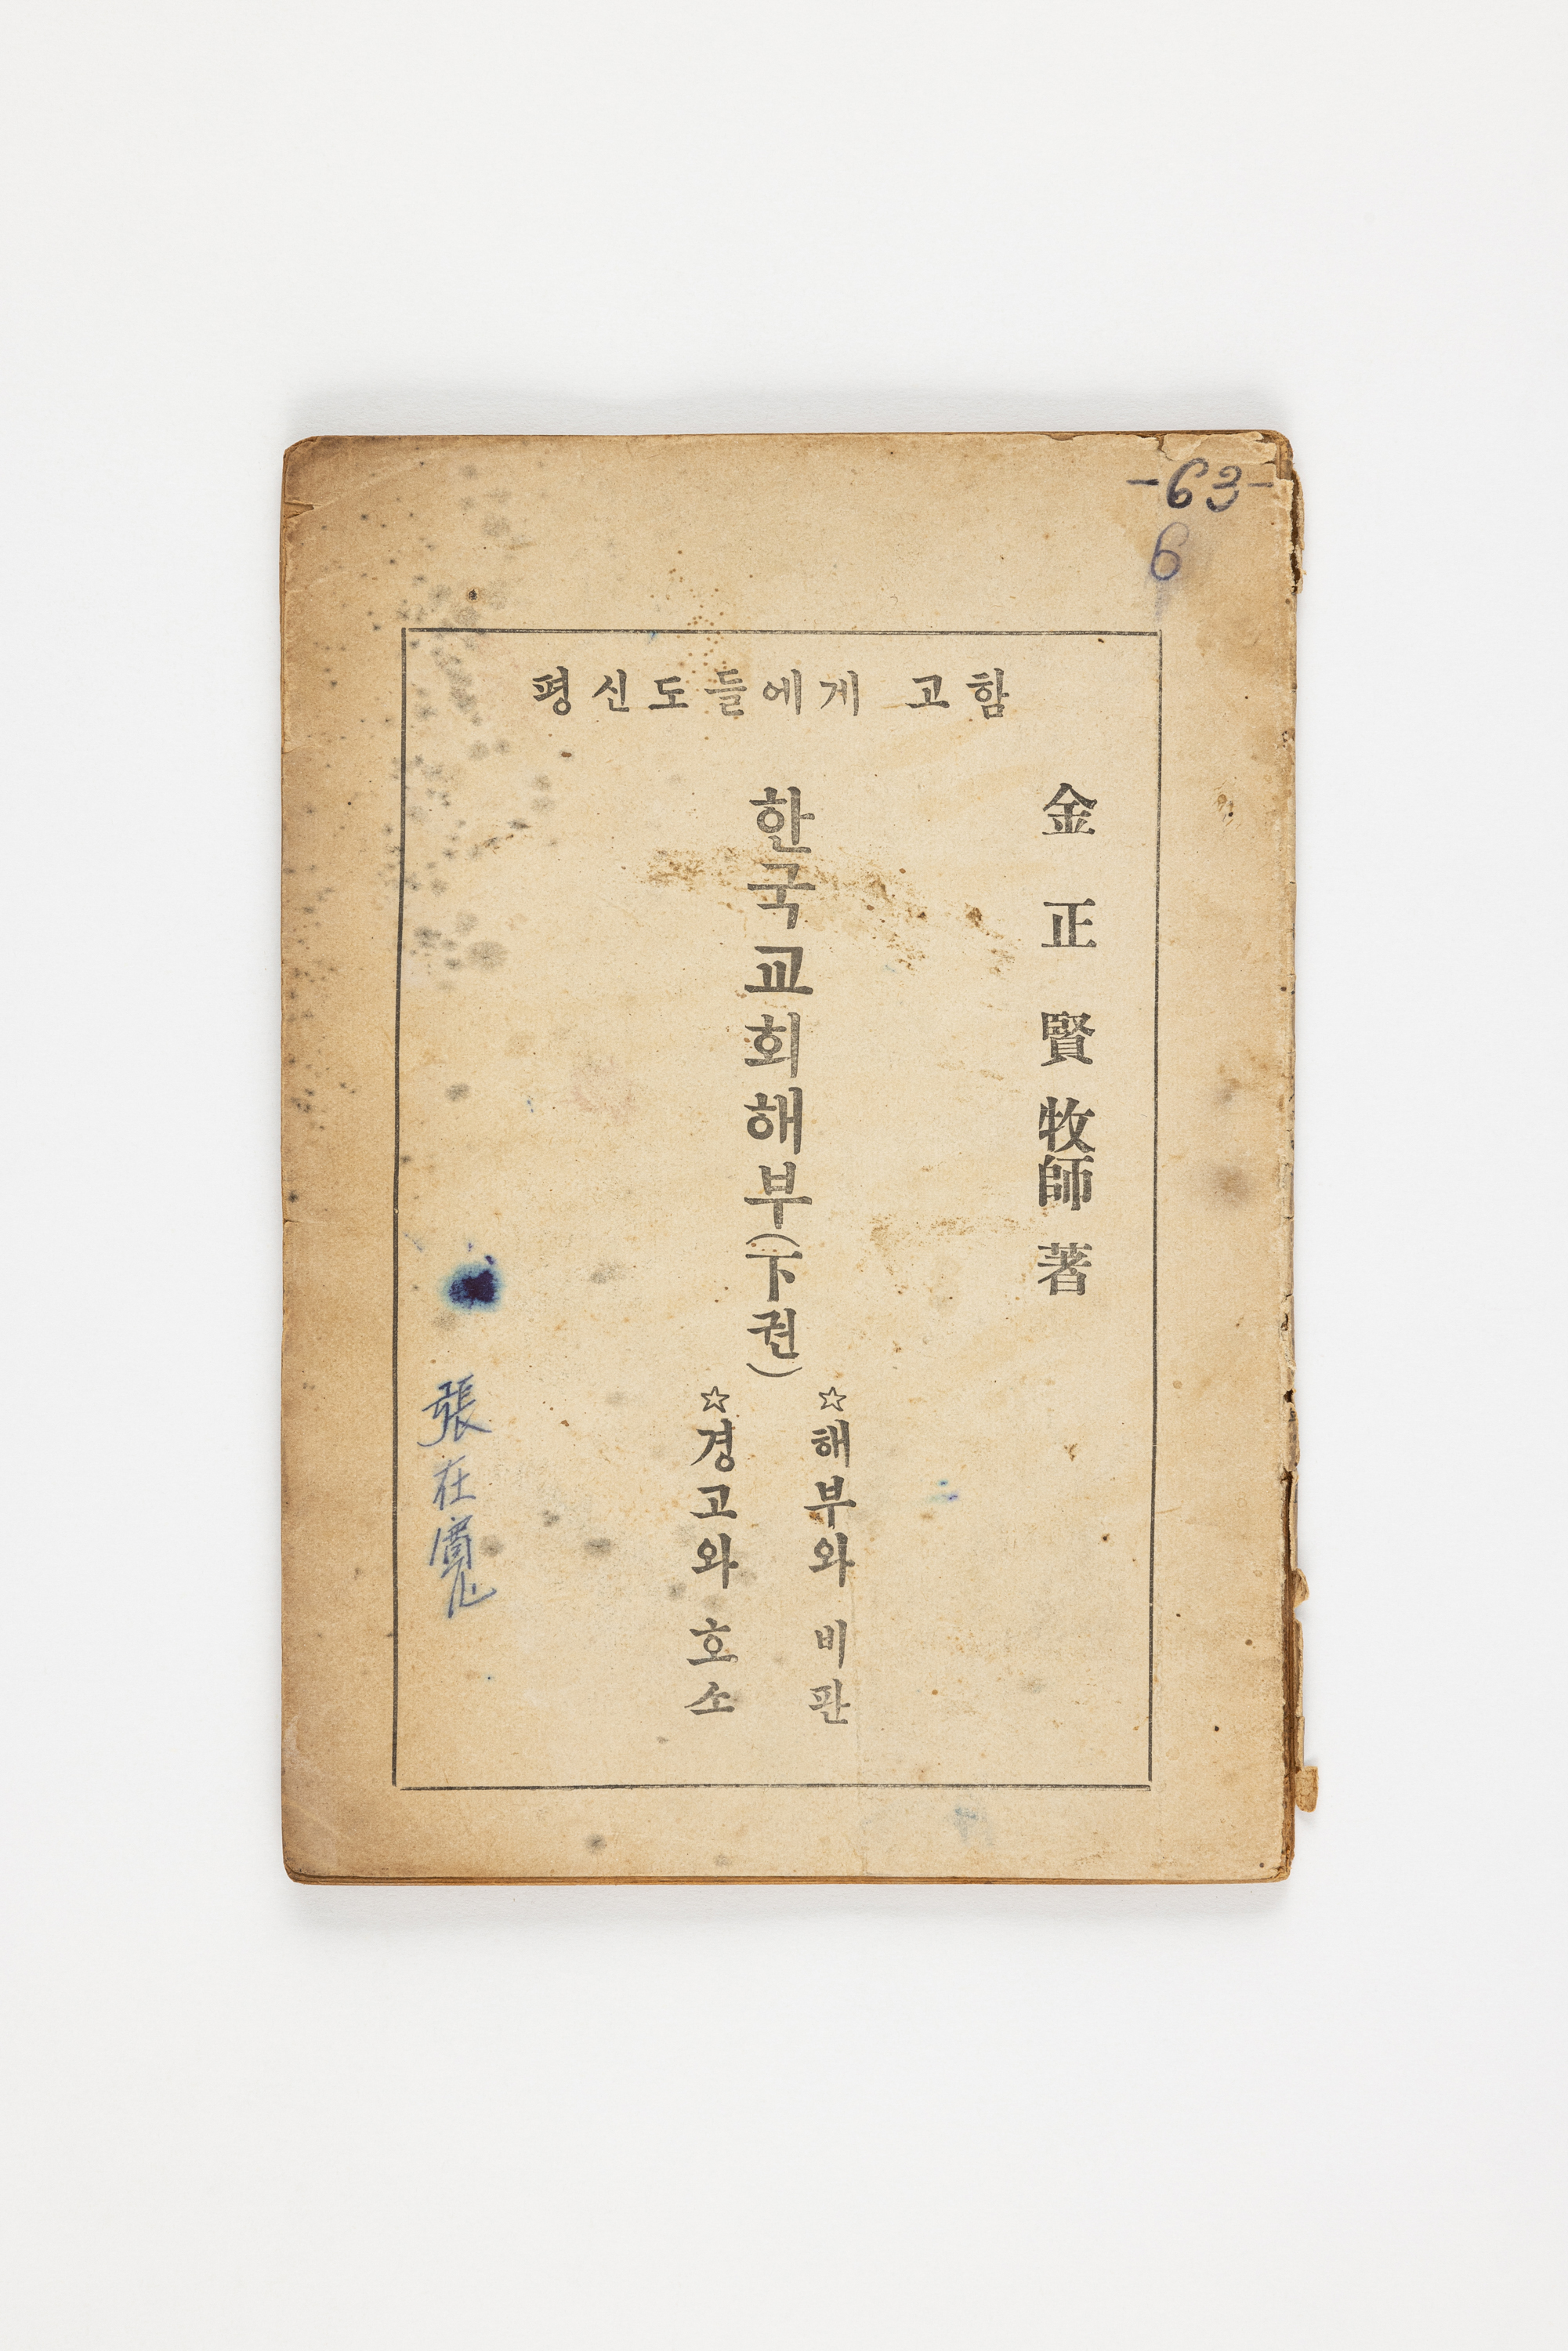 -63-
6
평신도들에게 고함
金正賢牧師 著
한국교회해부(下권)
☆해부와 비판
☆경고와 호소
張在